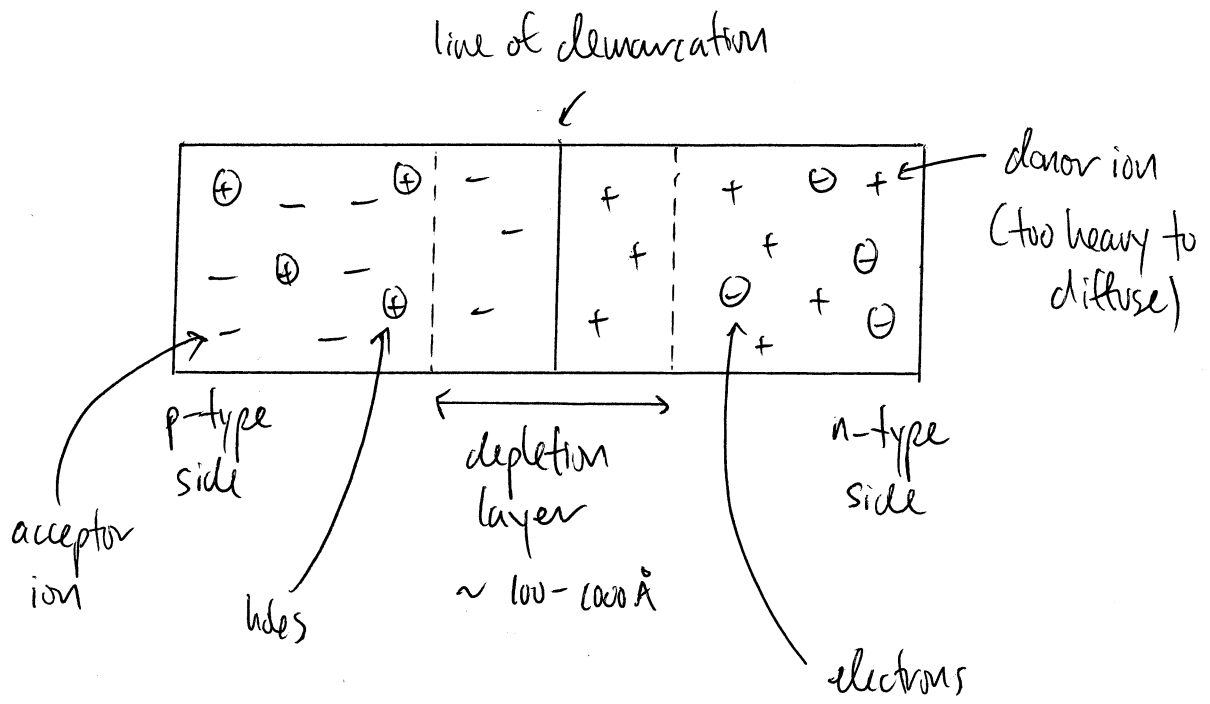 line of demarcation
donor ion
(too heavy to
diffuse)
p-type
side
depletion
layer
~ 100-1000Å
n-type
side
acceptor
ion
holes
electrons